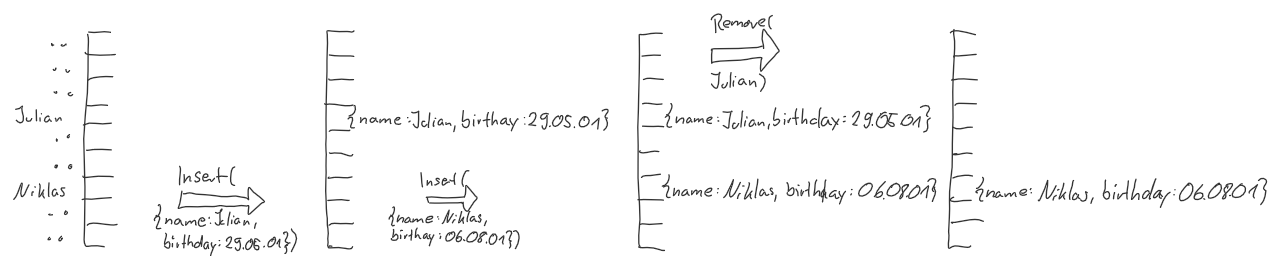 Julian
Niklas
Insert(
{name:Julian,
birthday:29.05.01})
{name:Julian, birthay:29.05.01}
Insert(
{name:Niklas,
birthay:06.08.01})
Remove(
Julian)
{name:Julian,birthday:29.05.01}
{name:Niklas, birthday:06.08.01}
{name: Niklas, birthday:06.08.01}